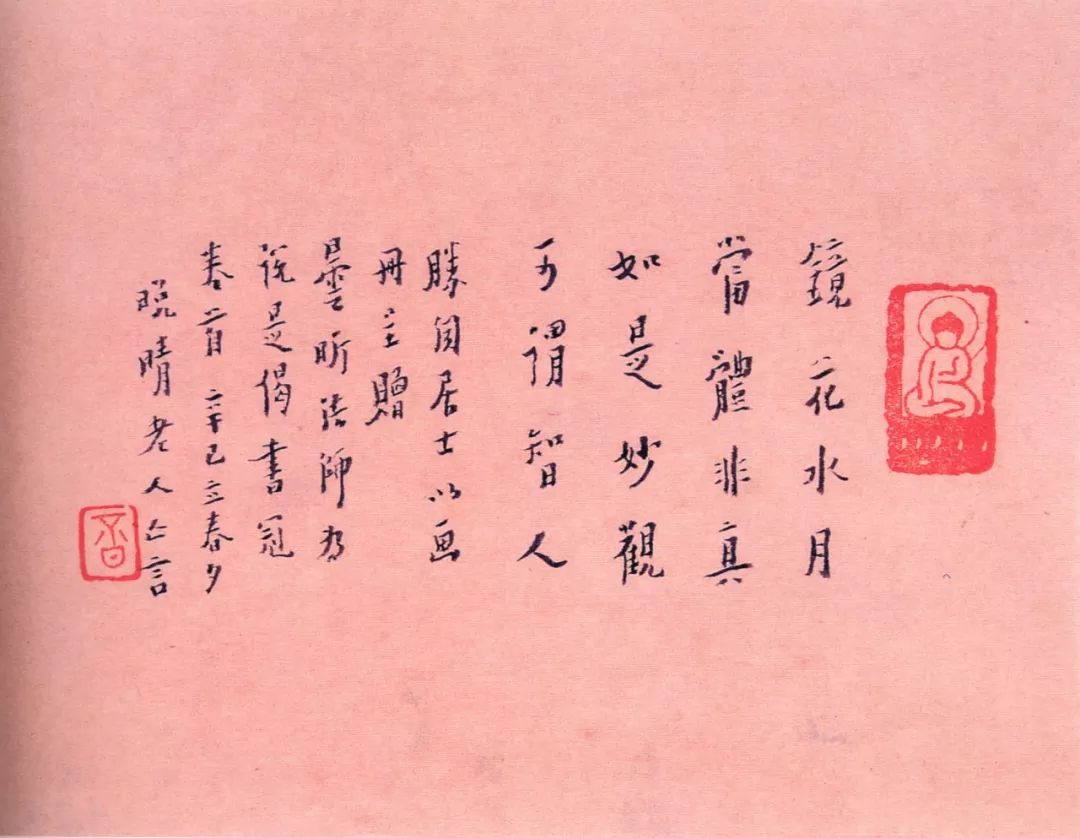 鏡花水月
當體非真
如是妙觀
可謂智人
勝因居士以画
冊 贈
曇昕法師為
說是偈書冠
卷首 辛巳立春夕
晚晴老人亡言